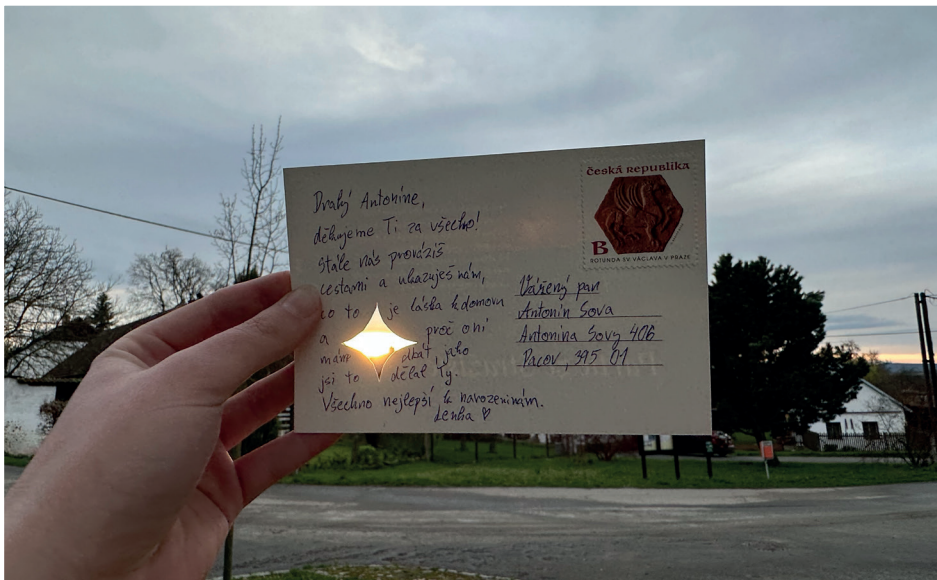 Drahý Antoníne,
děkujeme Ti za všechno!
Stále nás provázíš
cestami a ukazuješ nám,
co to je láska k domovu
a proč o ni
máme dbát jako
jsi to dělal Ty.
Všechno nejlepší k narozeninám.
Lenka
Česká republika
B
ROTUNDA SV. VÁCLAVA V PRAZE
Vážený pan
Antonín Sova
Antonína Sovy 406
Pacov, 395 01